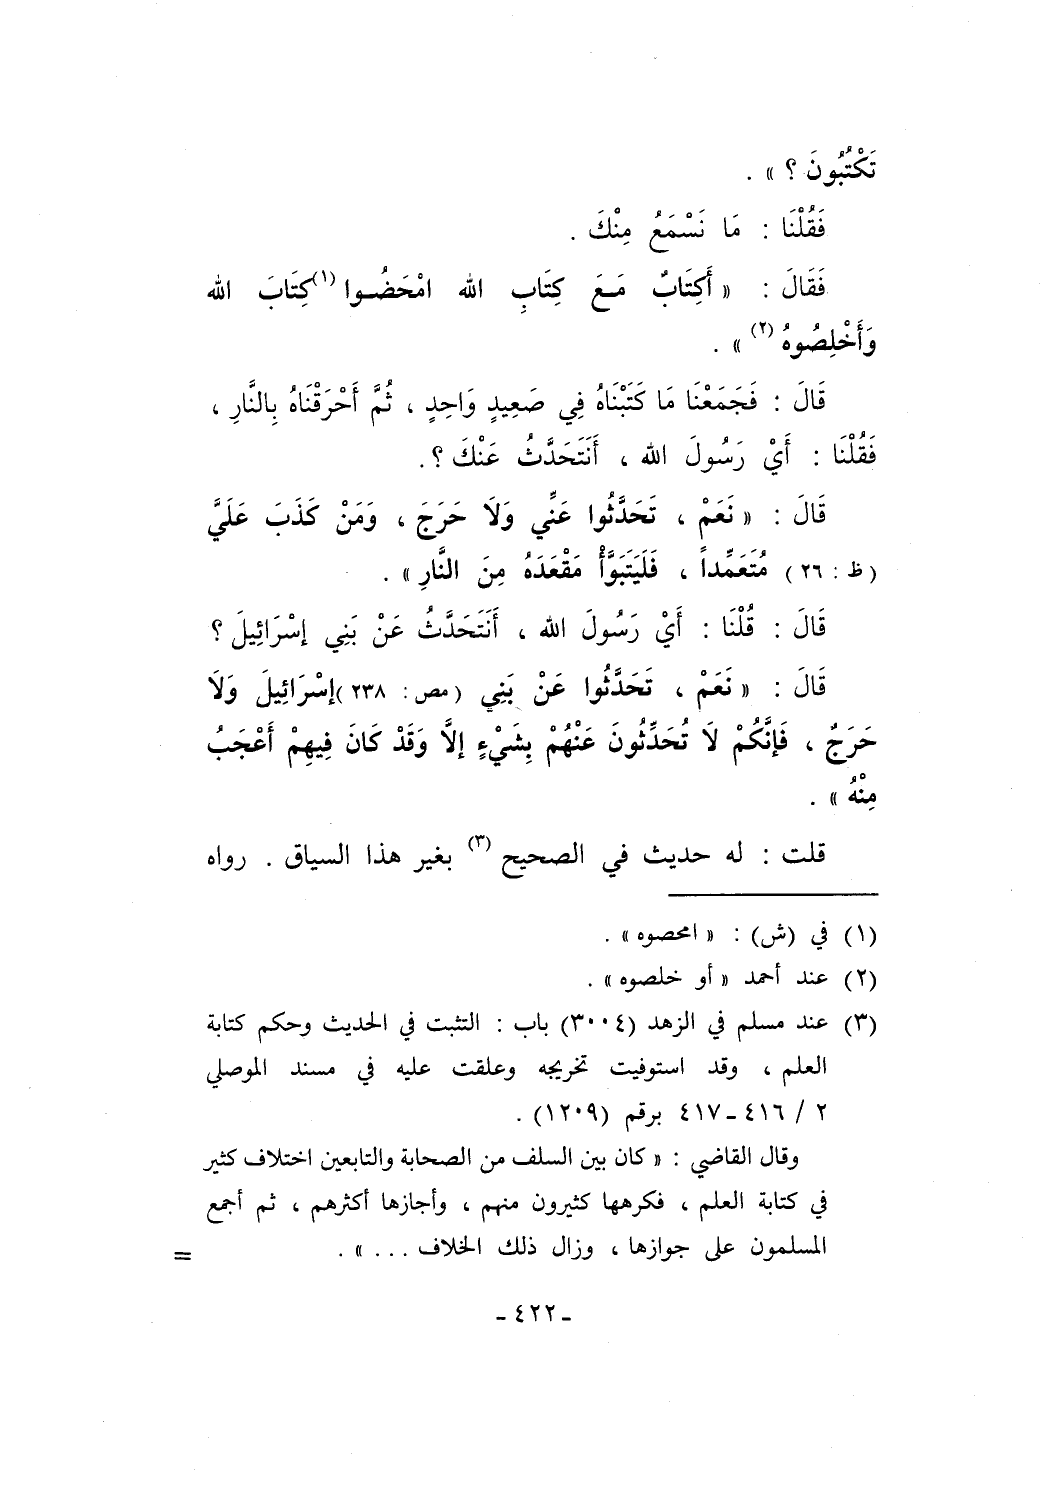 تَكْتُبُونَ ؟ » .
فَقُلْنَا : مَا نَسْمَعُ مِنْكَ .
فَقَالَ : « أَكِتَابٌ مَـعَ كِتَابِ الله امْحَضُـوا (١) كِتَابَ الله
وَأَخْلِصُوهُ (٢) » .
قَالَ : فَجَمَعْنَا مَا كَتَبْنَاهُ فِي صَعِيدٍ وَاحِدٍ ، ثُمَّ أَحْرَقْنَاهُ بِالنَّارِ ،
فَقُلْنَا : أَيْ رَسُولَ الله ، أَنَتَحَدَّثُ عَنْكَ ؟ .
قَالَ : « نَعَمْ ، تَحَدَّثُوا عَنِّي وَلَا حَرَجَ ، وَمَنْ كَذَبَ عَلَيَّ
( ظ : ٢٦ ) مُتَعَمِّداً ، فَلْيَتَبَوَّأْ مَقْعَدَهُ مِنَ النَّارِ » .
قَالَ : قُلْنَا : أَيْ رَسُولَ الله ، أَنَتَحَدَّثُ عَنْ بَنِي إسْرَائِيلَ ؟
قَالَ : « نَعَمْ ، تَحَدَّثُوا عَنْ بَنِي ( مص : ٢٣٨ ) إسْرَائِيلَ وَلَا
حَرَجٌ ، فَإنَّكُمْ لَا تُحَدِّثُونَ عَنْهُمْ بِشَيْءٍ إلاَّ وَقَدْ كَانَ فِيهِمْ أَعْجَبُ
مِنْهُ » .
قلت : له حديث في الصحيح (٣) بغير هذا السياق . رواه
(١) في (ش) : « امحصوه » .
(٢) عند أحمد « أو خلصوه » .
(٣) عند مسلم في الزهد (٣٠٠٤) باب : التثبت في الحديث وحكم كتابة
العلم ، وقد استوفيت تخريجه وعلقت عليه في مسند الموصلي
٢ / ٤١٦ - ٤١٧ برقم (١٢٠٩) .
وقال القاضي : « كان بين السلف من الصحابة والتابعين اختلاف كثير
في كتابة العلم ، فكرهها كثيرون منهم ، وأجازها أكثرهم ، ثم أجمع
المسلمون على جوازها ، وزال ذلك الخلاف . . . » . =
- ٤٢٢ -